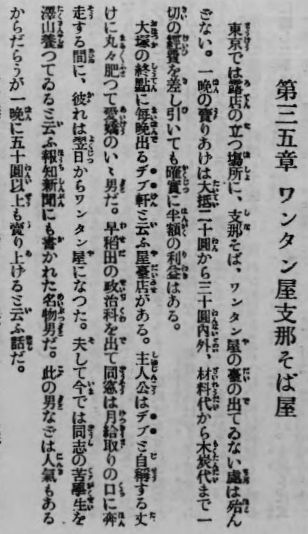 第三五章 ワンタン屋支那そば屋
東京では露店の立つ場所に、支那そば、ワンタン屋の臺の出てゐない處は殆ん
どない。一晩の賣りあけは大抵二十圓から三十圓內外、材料代から木炭代まで一
切の經費を差し引いても確實に半額の利益はある。
大塚の終點に每晩出るデブ軒と云ふ屋臺店がある。主人公はデブと自稱する丈
けに丸々肥つて愛嬌のいゝ男だ。早稻田の政治科を出て同窓は月給取りの口に奔
走する間に、彼れは翌日からワンタン屋になつた。夫して今では同志の苦學生を
澤山養つてゐると云ふ報知新聞にも書かれた名物男だ。此の男なごは人氣もある
からだらうが一晩に五十圓以上も賣り上けると云ふ話だ。